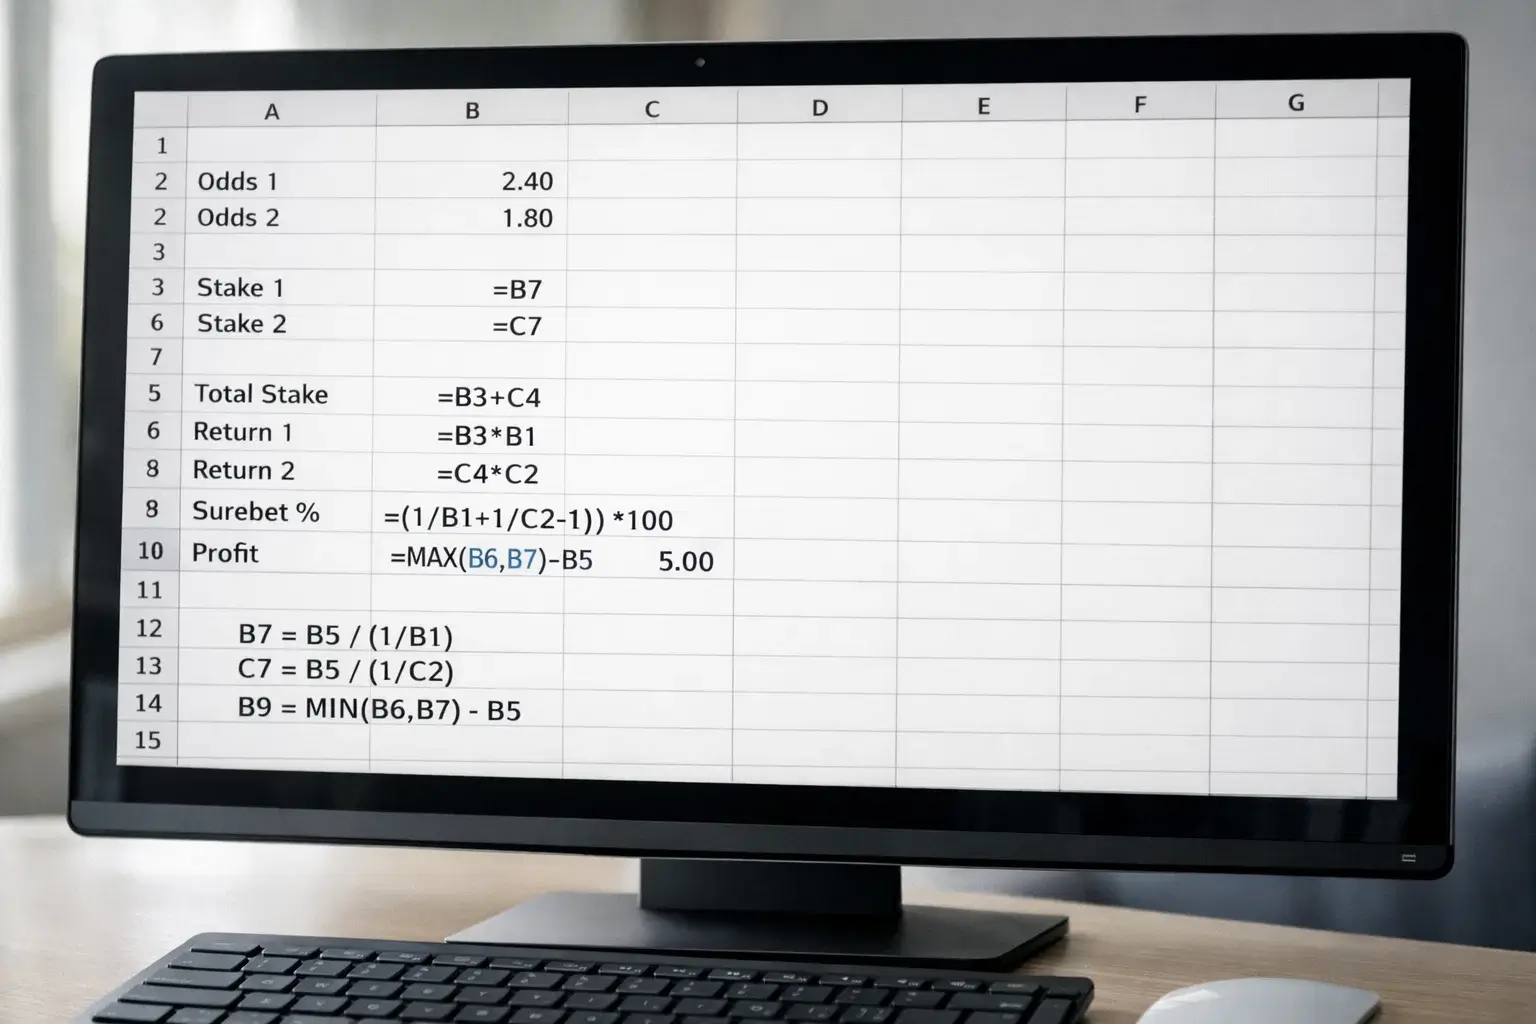 A B C D E F G
1
2 Odds 1 2.40
2 Odds 2 1.80
3
3 Stake 1 =B7
6 Stake 2 =C7
7
5 Total Stake =B3+C4
6 Return 1 =B3*B1
8 Return 2 =C4*C2
8 Surebet % =(1/B1+1/C2-1)) *100
10 Profit =MAX(B6,B7)-B5 5.00
11
12 B7 = B5 / (1/B1)
13 C7 = B5 / (1/C2)
14 B9 = MIN(B6,B7) - B5
15